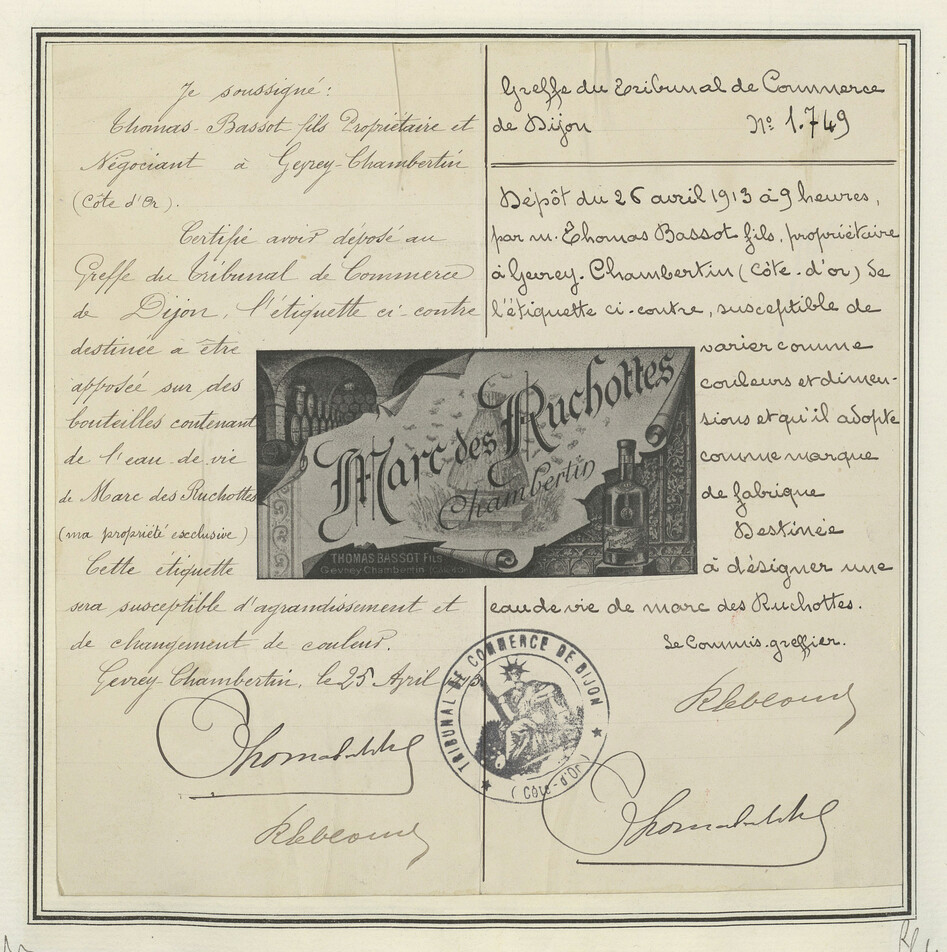 Je soussigné:
Thomas-Bassot fils Propriétaire et
Négociant à Gevrey-Chambertin
(Côte d'Or).
Certifie avoir déposé au
Greffe du Tribunal de Commerce
de Dijon, l'étiquette ci-contre
destinée a être
apposée sur des
bouteilles contenant
de l'eau de vie
de Marc des Ruchottes
(ma propriété exclusive)
Cette étiquette
sera susceptible d'agrandissement et
de changement de couleur.
Gevrey-Chambertin, le 25 Avril
Greffe du Tribunal de Commerce
de Dijon No 1.749
Dépôt du 26 avril 1913 à 9 heures,
par m. Thomas Bassot fils, propriétaire
à Gevrey-Chambertin (Côte-d'or) de
l'étiquette ci-contre, susceptible de
varier comme
couleurs et dimen-
sions et qu'il adopte
comme marque
de fabrique
Destinée
à désigner une
eau de vie de marc des Ruchottes.
Le Commis-greffier.
Marc des Ruchottes
Chambertin
THOMAS BASSOT Fils
Gevrey-Chambertin (Côte-d'Or)
TRIBUNAL DE COMMERCE DE DIJON
(Côte-d'Or)